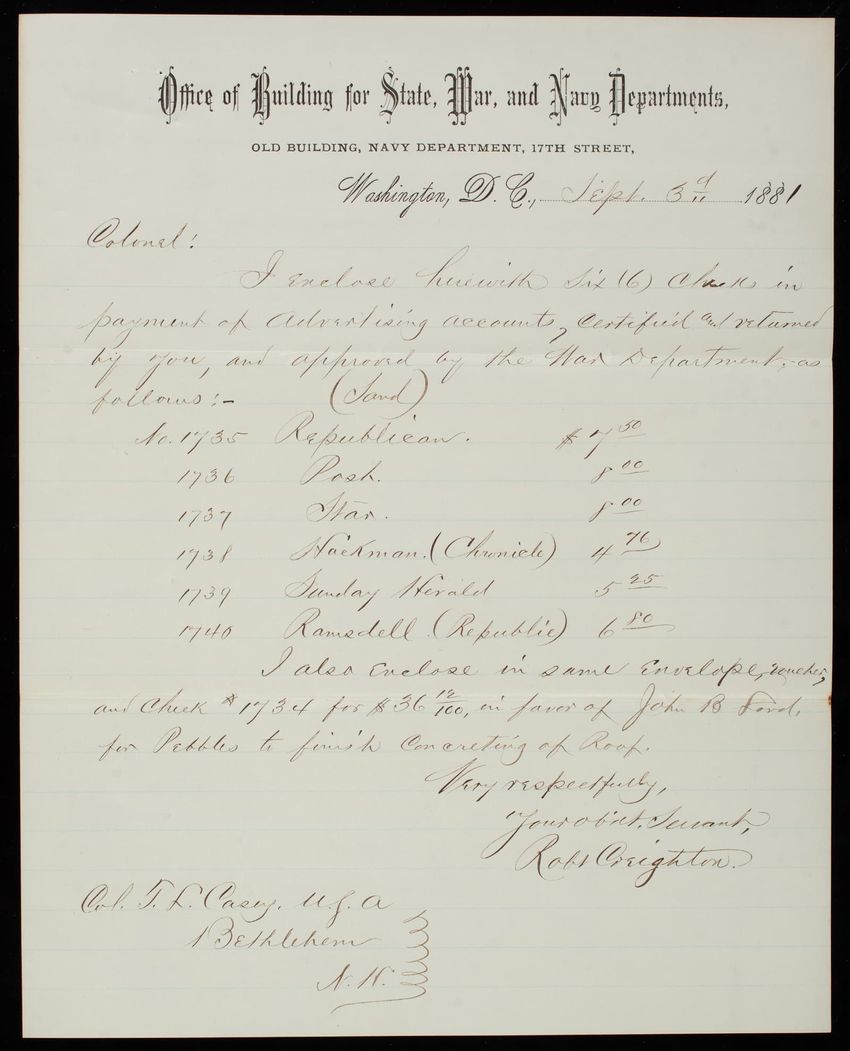 Office of Building for State, War, and Navy Departments,
OLD BUILDING, NAVY DEPARTMENT, 17TH STREET,
Washington, D. C., Sept. 3d 1881
Colonel:
I enclose herewith six (6) checks in
payment of Advertising accounts, certified and returned
by you, and approved by the War Department, as
follows:- (Sand)
No. 1735 Republican. $7 50
1736 Post. 8 00
1737 Star. 8 00
1738 Hackman. (Chronicle) 4 76
1739 Sunday Herald 5 25
1740 Ramsdell. (Republic) 6 80
I also enclose in same Envelope, voucher,
and Check # 1734 for $36 12/100, in favor of John B Ford,
for Pebbles to finish Concreting of Roof.
Very respectfully,
Your ob'dt. Servant,
Robt Creighton.
Col. T. L. Casey, U.S.A
Bethlehem
N.H.